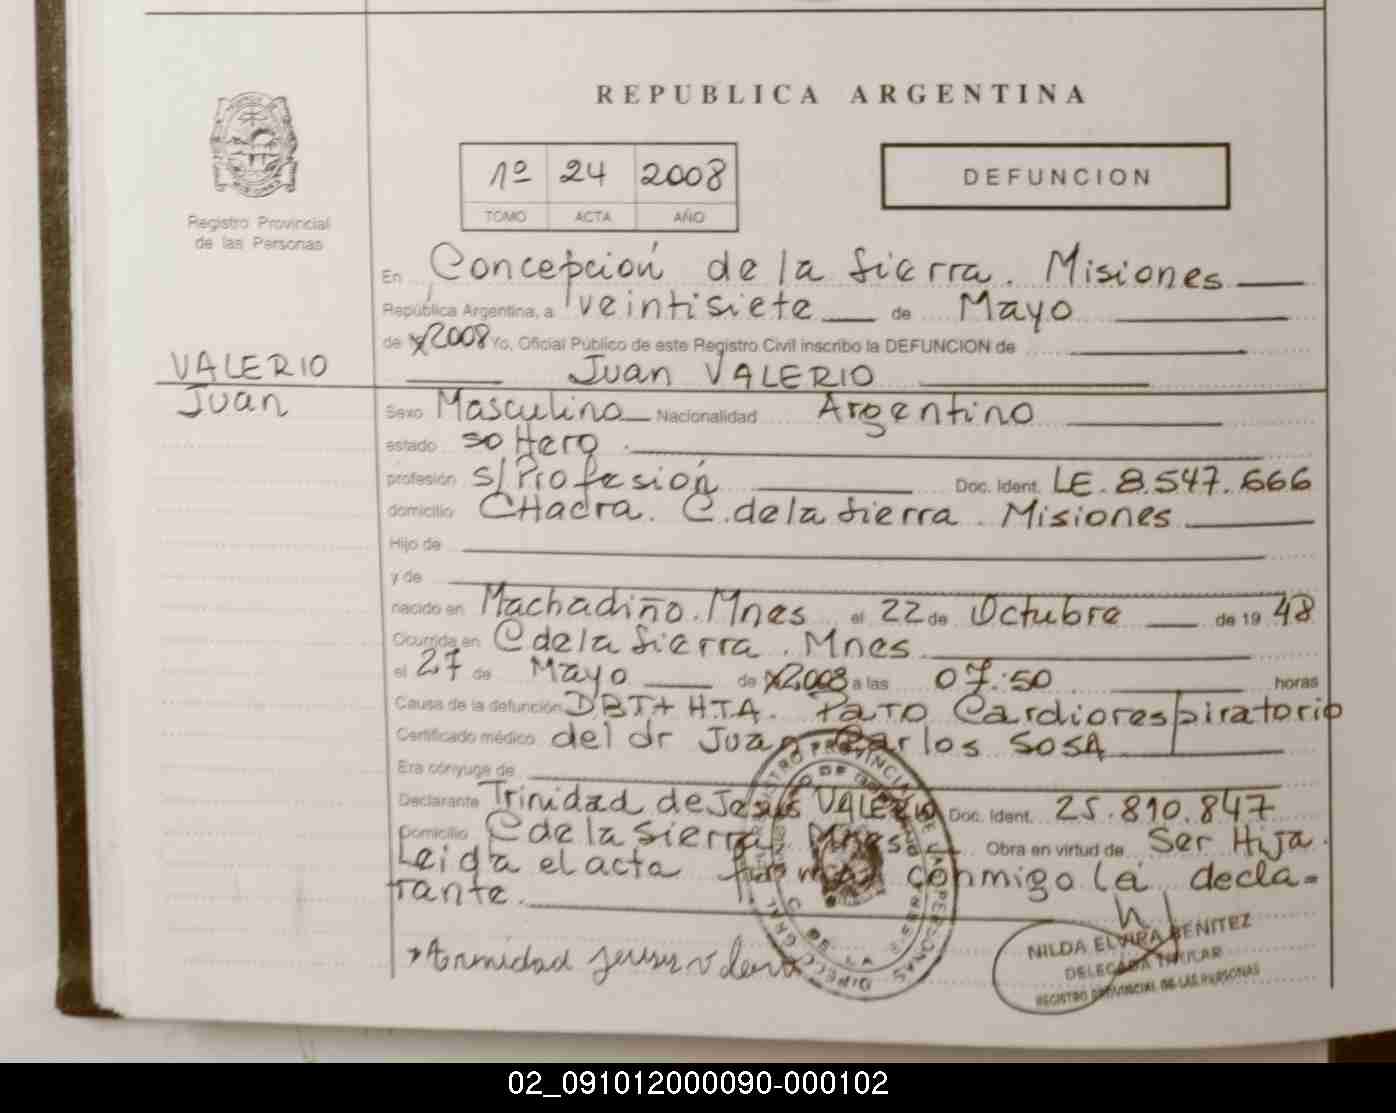 REPUBLICA ARGENTINA
1º 24 2008
TOMO ACTA AÑO
DEFUNCION
Registro Provincial
de las Personas
En Concepción de la Sierra. Misiones
República Argentina, a veintisiete de Mayo
de 2008 Yo, Oficial Público de este Registro Civil inscribo la DEFUNCION de
VALERIO
Juan
Juan VALERIO
Sexo Masculino Nacionalidad Argentino
estado soltero.
profesión s/Profesión Doc. Ident. LE. 8.547.666
domicilio CHacra. C. de la Sierra. Misiones
Hijo de
y de
nacido en Machadiño. Mnes el 22 de Octubre de 19 48
Ocurrida en C de la Sierra. Mnes.
el 27 de Mayo de 2008 a las 07:50 horas
Causa de la defunción DBT+ HTA. Paro Cardiorespiratorio
Certificado médico del dr Juan Carlos SOSA
Era cónyuge de
Declarante Trinidad de Jesús VALERIO Doc. Ident. 25.810.847
Domicilio C de la Sierra. Mnes. Obra en virtud de Ser Hija.
Leida el acta firma conmigo la decla-
rante.
NILDA ELVIRA BENITEZ
DELEGADA TITULAR
REGISTRO PROVINCIAL DE LAS PERSONAS
02_091012000090-000102